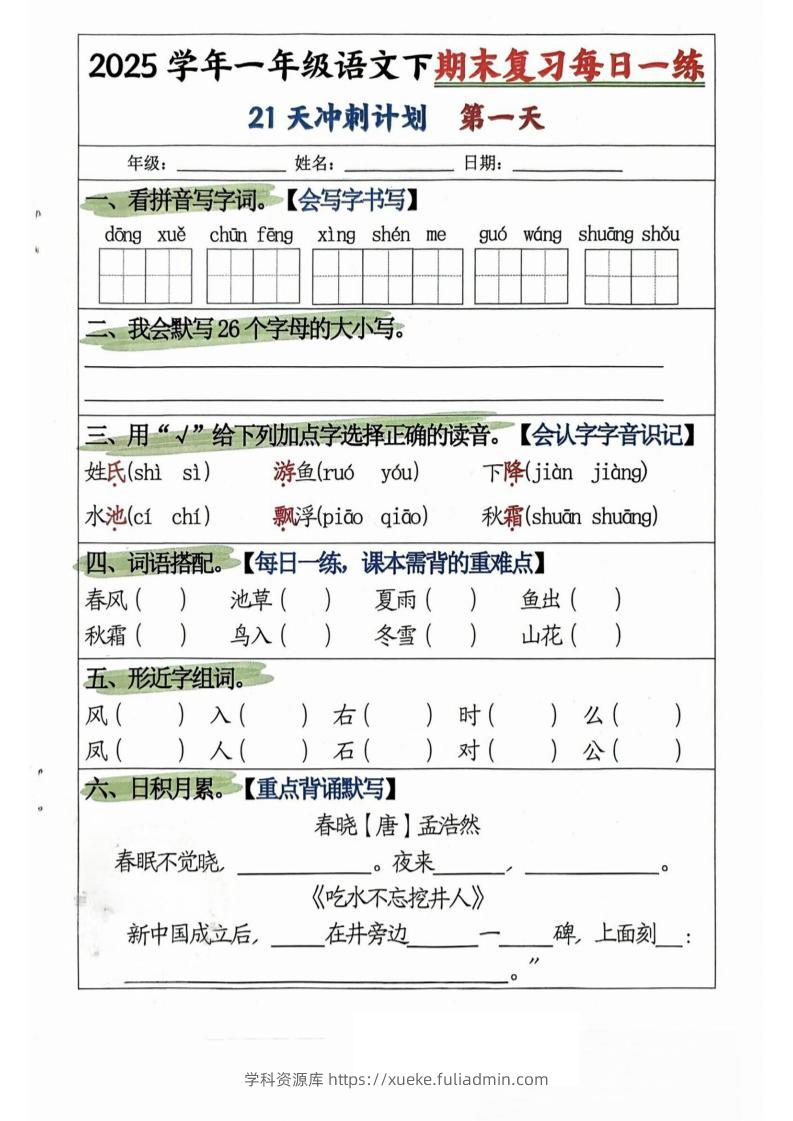 2025 学年一年级语文下期末复习每日一练
21 天冲刺计划 第一天
年级：__________ 姓名：__________ 日期：__________
一、看拼音写字词。【会写字书写】
dōng xuě chūn fēng xìng shén me guó wáng shuāng shǒu
二、我会默写 26 个字母的大小写。
三、用“√”给下列加点字选择正确的读音。【会认字字音识记】
姓氏(shì sì) 游鱼(ruó yóu) 下降(jiàn jiàng)
水池(cí chí) 飘浮(piāo qiāo) 秋霜(shuān shuāng)
四、词语搭配。【每日一练，课本需背的重难点】
春风（ ） 池草（ ） 夏雨（ ） 鱼出（ ）
秋霜（ ） 鸟入（ ） 冬雪（ ） 山花（ ）
五、形近字组词。
风（ ） 入（ ） 右（ ） 时（ ） 么（ ）
凤（ ） 人（ ） 石（ ） 对（ ） 公（ ）
六、日积月累。【重点背诵默写】
春晓【唐】孟浩然
春眠不觉晓，____________。夜来______，____________。
《吃水不忘挖井人》
新中国成立后，_____在井旁边______一_____碑，上面刻__：
____________________。”
学科资源库 https://xueke.fuliadmin.com